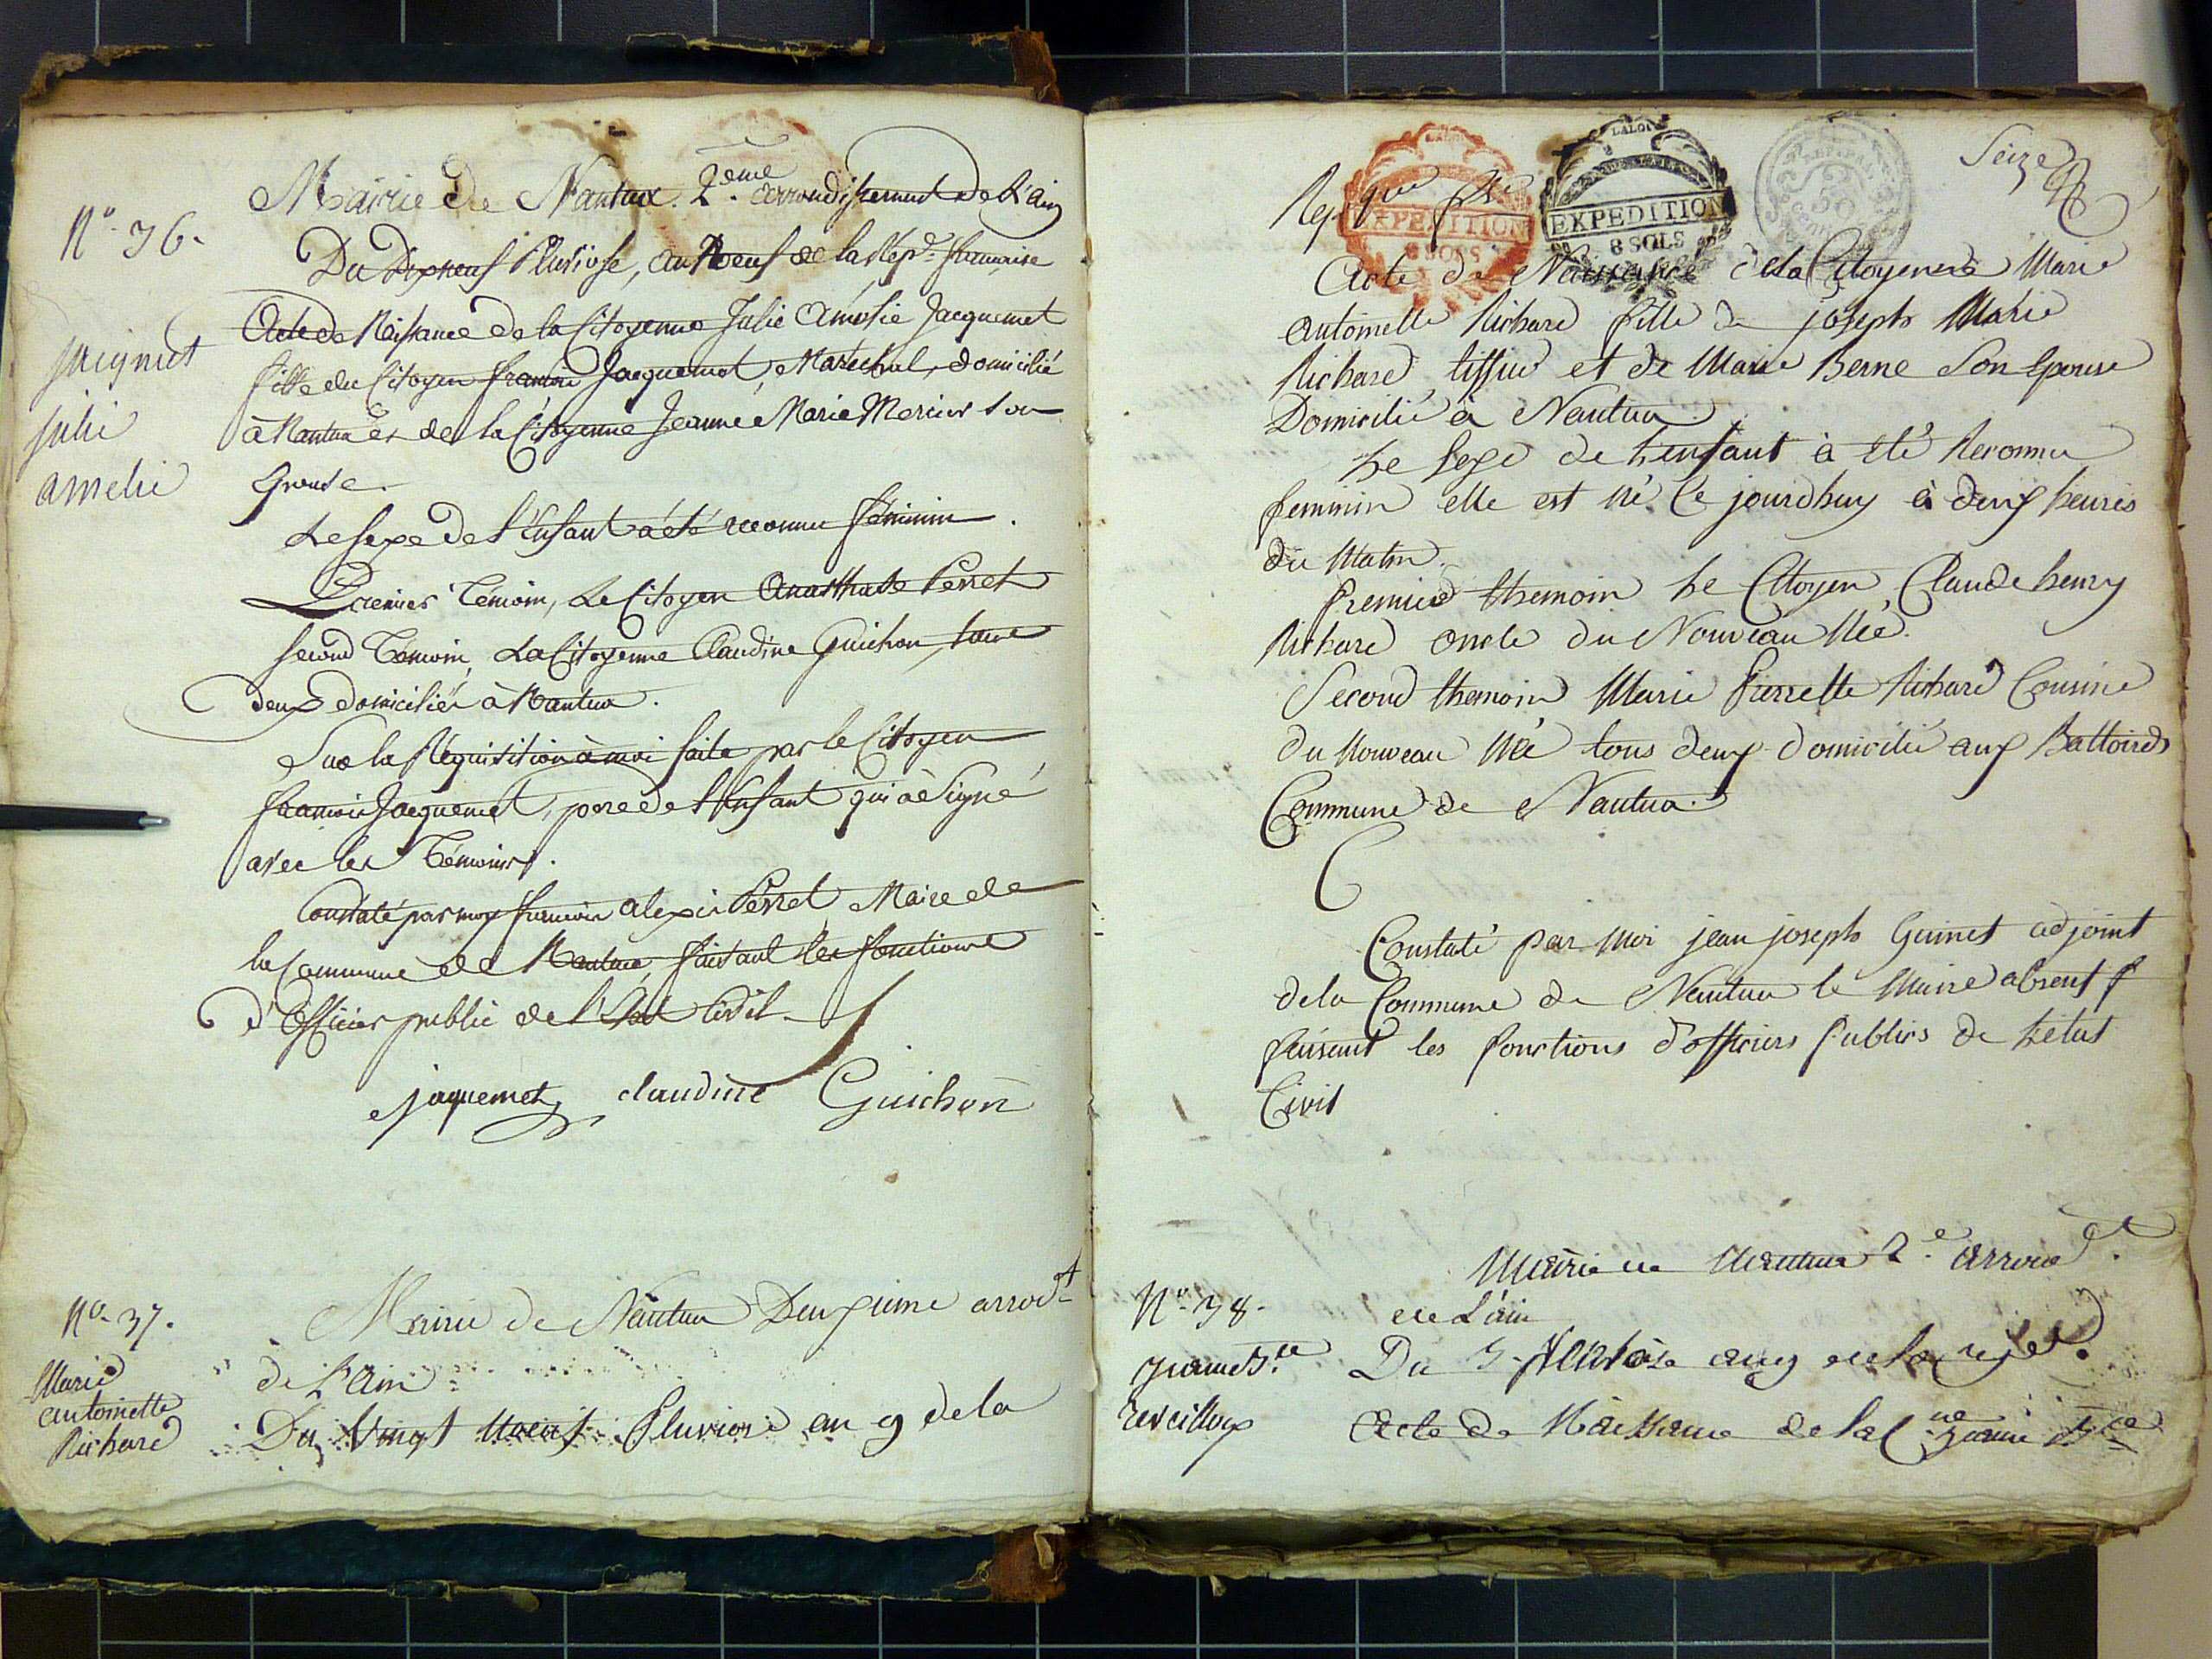 Nº 36.
Mairie de Nantua. 2.eme arrondissement de L'ain
Du Dixneuf Pluviose, an Neuf de la Rép.e francaise
Acte de Naissance de la Citoyenne Julie Amélie Jacquemet
fille du Citoyen francois Jacquemet, Maréchal, domicilié
à Nantua et de la Citoyenne Jeanne Marie Mercier son
Epouse.
Le sexe de l'Enfant a été reconnu féminin.
Premier Témoin, Le Citoyen Anasthase Perret
second Témoin, La Citoyenne Claudine Guichon, tous
deux domiciliés à Nantua.
Sur la Réquisition à moi faite par le Citoyen
francois Jacquemet, pere de l'Enfant qui a Signé
avec les Témoins.
Constaté par moy francois alexis Perret Maire de
la Commune de Nantua, faisant les fonctions
d'Officier public de l'Etat Civil.
jaquemet claudine Guichon
julie
amelie
Nº 37.
Marie
antoinette
Richard
Mairie de Nantua Deuxieme arrod.t
de L'ain
Du Vingt Neuf Pluviose an 9 de la
Seize
Rep.que
EXPEDITION
8 SOLS
LA LOI
EXPEDITION
8 SOLS
50
Acte de Naissance de la Citoyenne Marie
antoinette Richard fille de joseph Marie
Richard tissier et de Marie Berne Son Epouse
Domicilié à Nantua
Le Sexe de L'enfant à été Reconnu
feminin elle est né Ce jourdhuy à deux heures
du Matin.
Premier themoin Le Citoyen Claude henry
Richard oncle du Nouveau Né.
Second themoin Marie Pierrette Richard Cousine
du Nouveau Né tous deux domicilié aux Battoirs
Commune de Nantua.
Constaté par Moi jean joseph Guinet adjoint
de la Commune de Nantua le Maire absent
faisant les fonctions d'officiers Publics de L'état
Civil
Nº 38.
Mairie de Nantua 2.e arron.d
de L'ain
Du 5 Ventose an 9 de la rep.
Acte de Naissance de la C.ne jeanne